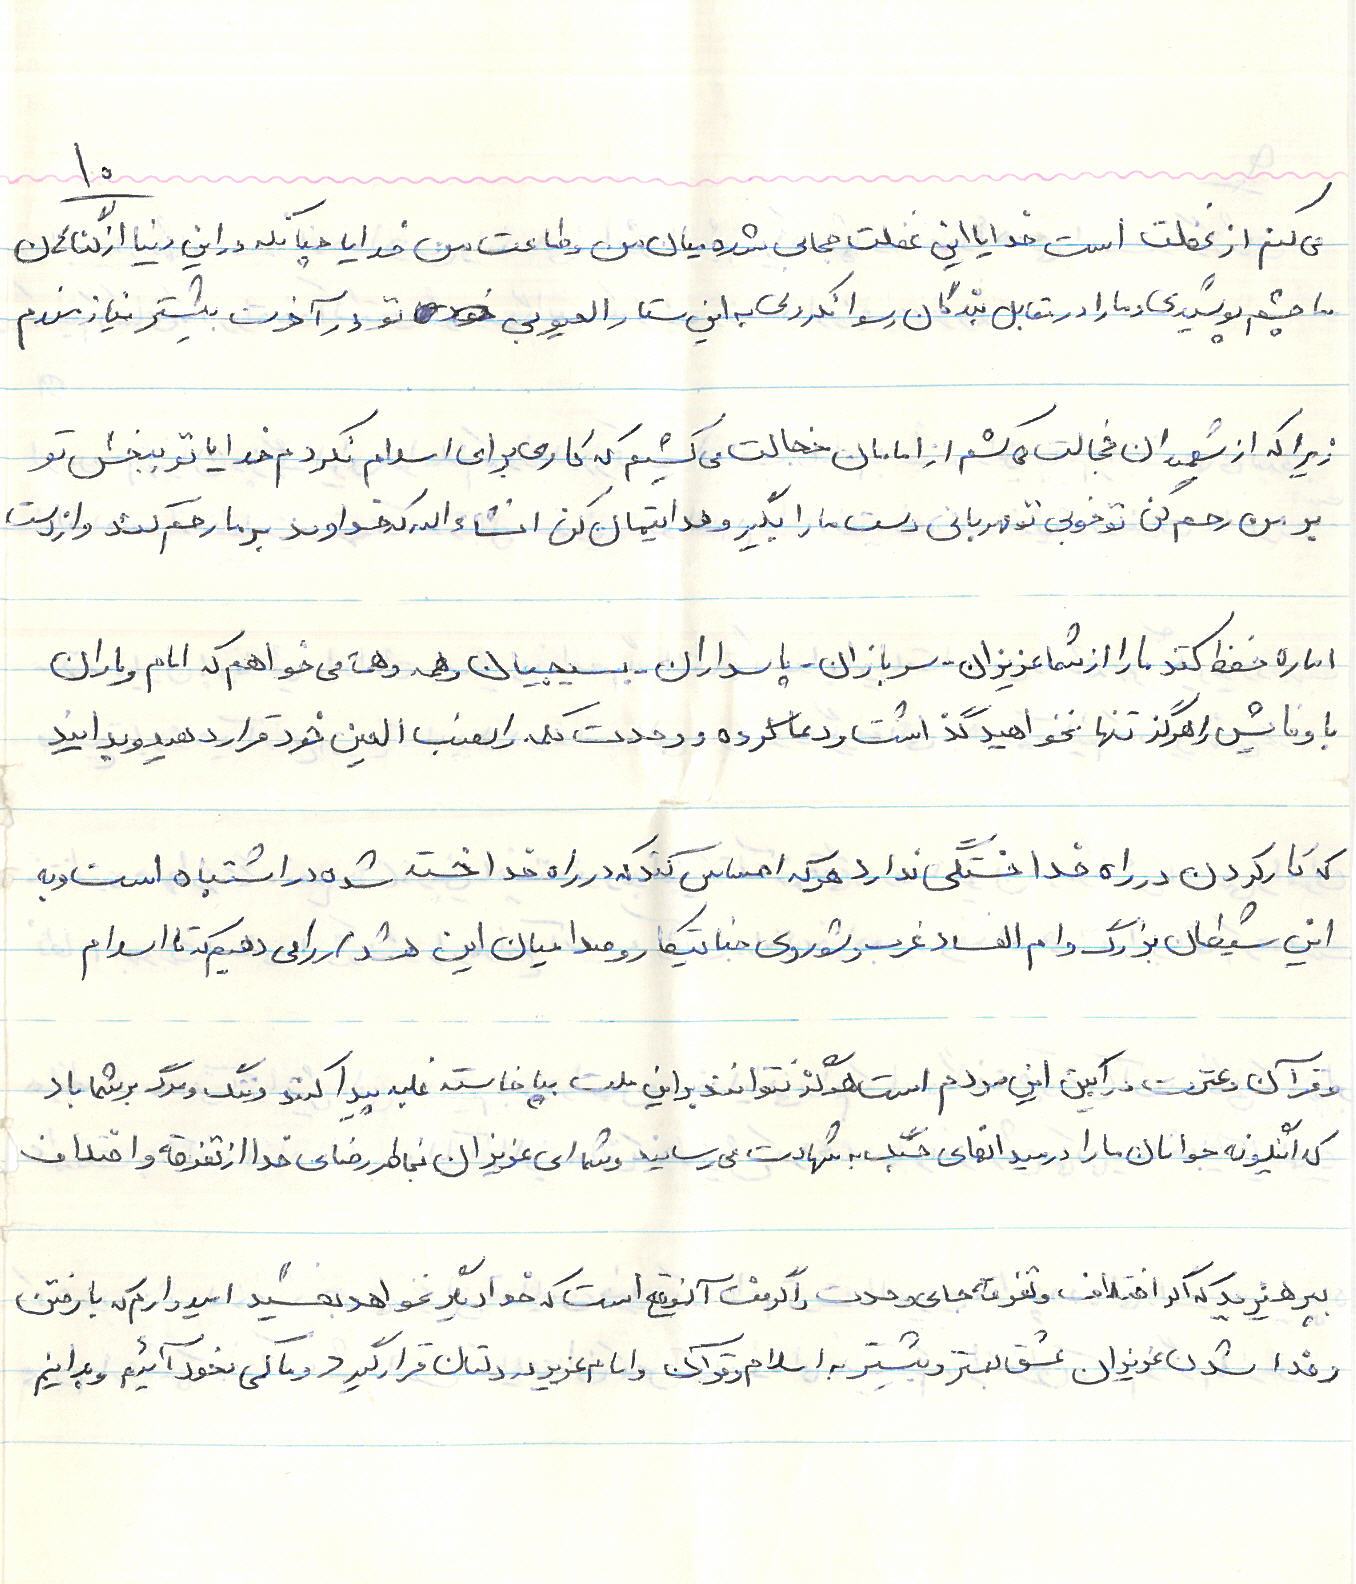 ۱۰
می کنم از غفلت است خدایا این غفلت حجابی شده میان من و طاعت من خدایا چنانکه در این دنیا از گناهان
ما چشم پوشیدی و ما را در مقابل بندگان رسوا نکردی به این ستار العیوبی تو در آخرت بیشتر نیازمندم
زیرا که از شهیدان خجالت می کشم از امامان خجالت می کشیم که کاری برای اسلام نکردم خدایا تو ببخش تو
بر من رحم کن تو خوبی تو مهربانی دست ما را بگیر و هدایتمان کن انشاء الله که خداوند بر ما رحم کند و از دست
اماره حفظ کند ما را از شما عزیزان - سربازان - پاسداران - بسیجیان و همه و همه می خواهم که امام و یاران
با وفایش را هرگز تنها نخواهید گذاشت و دعا کرده و وحدت کلمه را نصب العین خود قرار دهید و بدانید
که کار کردن در راه خدا خستگی ندارد هر که احساس کند که در راه خدا خسته شده در اشتباه است و به
این شیطان بزرگ و ام الفساد غرب و شوروی جنایتکار و صدامیان این هشدار را می دهیم که تا اسلام
و قرآن و عترت در آیین این مردم است هرگز نتوانند بر این ملت بپا خاسته غلبه پیدا کنند و ننگ و مرگ بر شما باد
که اینگونه جوانان ما را در میدانهای جنگ به شهادت می رسانید و شما ای عزیزان بخاطر رضای خدا از تفرقه و اختلاف
بپرهیزید که اگر اختلاف و تفرقه جای وحدت را گرفت آنوقع است که خدا دیگر نخواهد بخشید امیدوارم که با رفتن
و فدا شدن عزیزان عشق بهتر و بیشتر به اسلام و قرآن و امام عزیز در دلتان قرار گیرد و ما کمی بخود آئیم و بدانیم